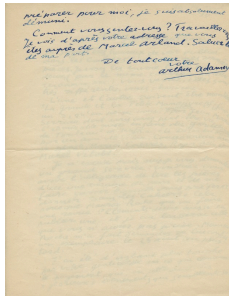 préparer pour moi, je suis absolument
démuni.
Comment vous sentez-vous ? Travaillez-vous
Je vois d'après votre adresse que vous
des auprès de Marcel Arland. Saluez le
de ma part.
De tout coeur
votre
Arthur Adamov